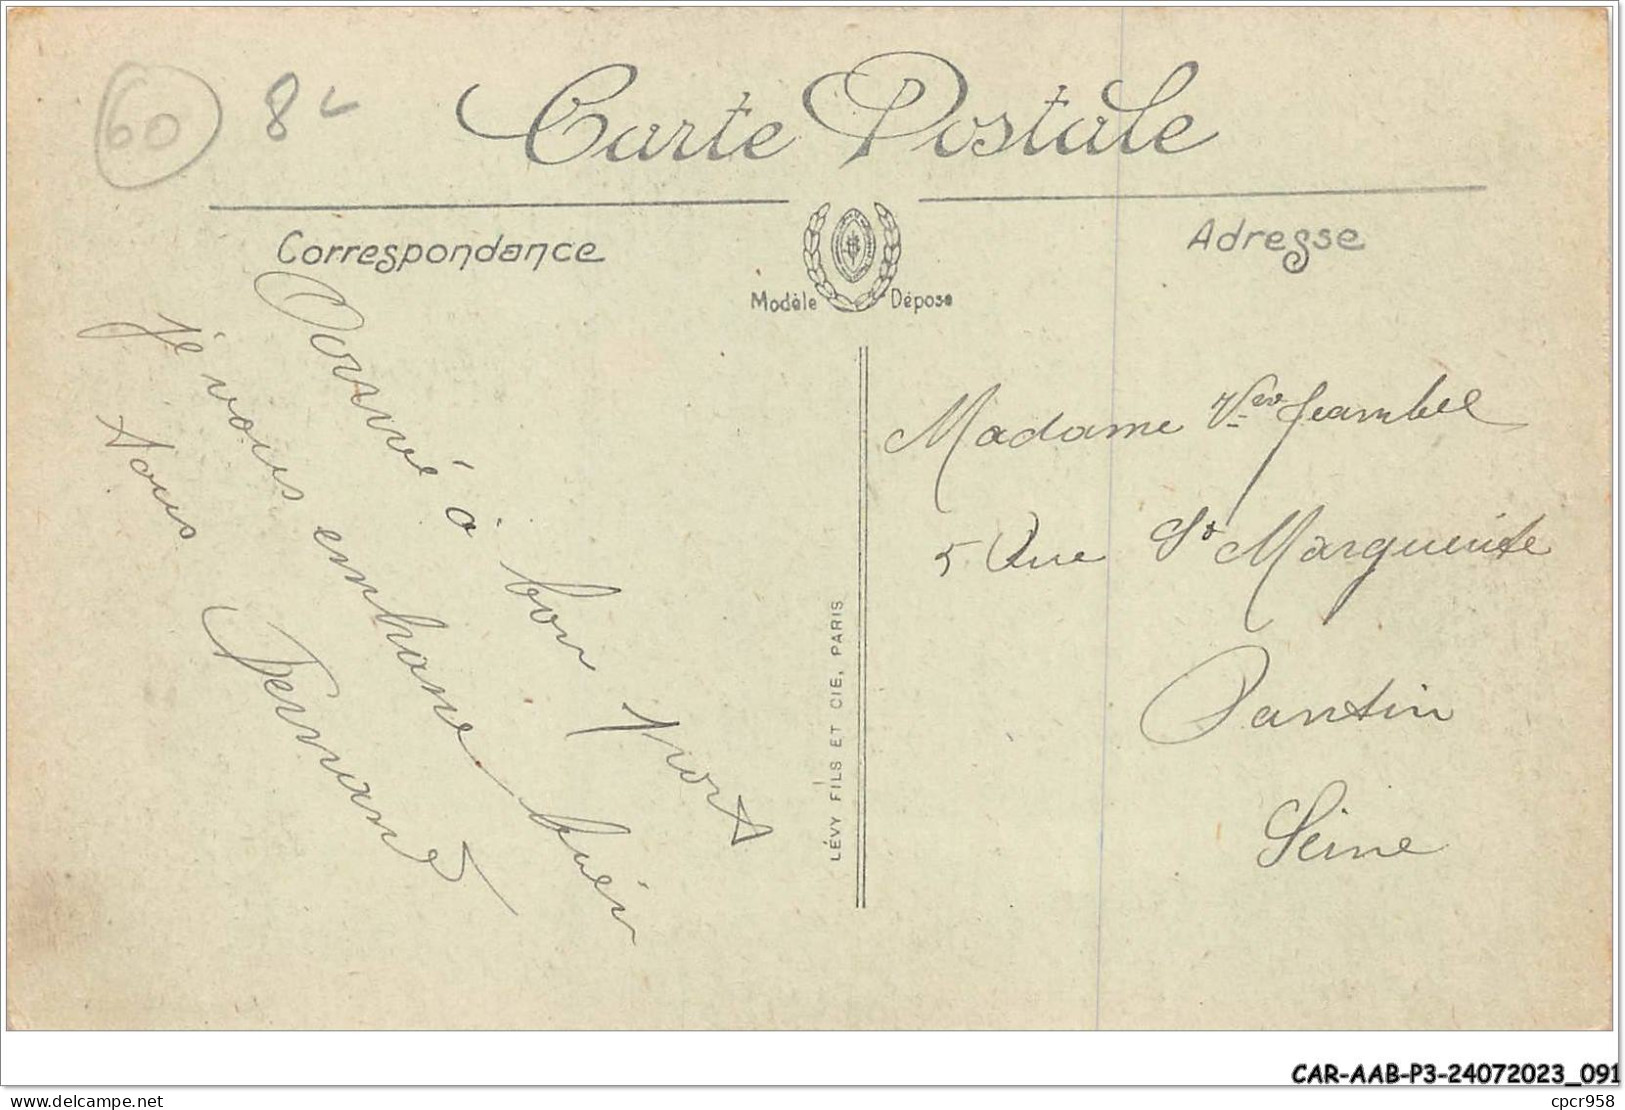 60 8
Carte Postale
Correspondance
Adresse
Modèle Déposé
Arrivé à bon port
je vous embrasse bien
tous
Fernand
LÉVY FILS ET CIE, PARIS
Madame Vve Jeambel
5 Rue Ste Marguerite
Pantin
Seine
CAR-AAB-P3-24072023_091
delcampe.net
cpcr958